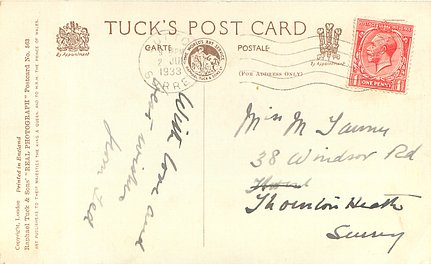 TUCK'S POST CARD
CARTE POSTALE
(FOR ADDRESS ONLY)
By Appointment
By Appointment
2 JUN
1933
SURREY
ONE PENNY
Copyright, London Printed in England
Raphael Tuck & Sons' "REAL PHOTOGRAPH" Postcard No. 563
ART PUBLISHERS TO THEIR MAJESTIES THE KING & QUEEN AND TO H.R.H. THE PRINCE OF WALES.
With love and
best wishes
from Ted
Miss M
38 Windsor Rd
Thornton Heath
Surrey